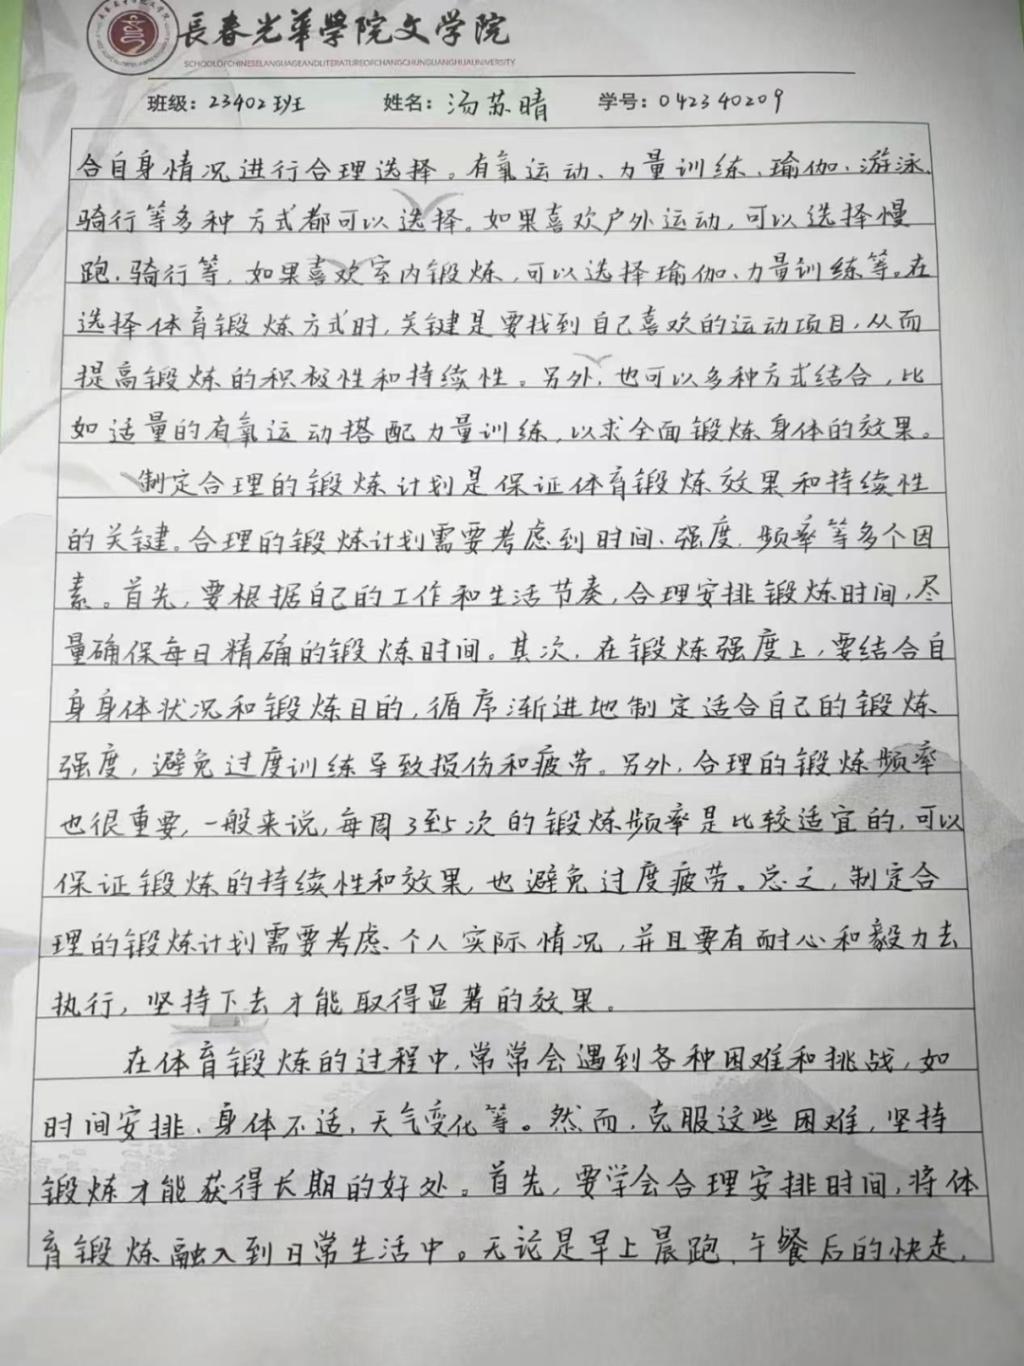 長春光華學院文学院
SCHOOLOFCHINESELANGUAGEANDLITERATUREOFCHANGCHUNGUANGHUAUNIVERSITY
班级：23402班 姓名：汤苏晴 学号：042340209
合自身情况进行合理选择。有氧运动、力量训练、瑜伽、游泳、
骑行等多种方式都可以选择。如果喜欢户外运动，可以选择慢
跑、骑行等，如果喜欢室内锻炼，可以选择瑜伽、力量训练等。在
选择体育锻炼方式时，关键是要找到自己喜欢的运动项目，从而
提高锻炼的积极性和持续性。另外，也可以多种方式结合，比
如适量的有氧运动搭配力量训练，以求全面锻炼身体的效果。
制定合理的锻炼计划是保证体育锻炼效果和持续性
的关键。合理的锻炼计划需要考虑到时间、强度、频率等多个因
素。首先，要根据自己的工作和生活节奏，合理安排锻炼时间，尽
量确保每日精确的锻炼时间。其次，在锻炼强度上，要结合自
身身体状况和锻炼目的，循序渐进地制定适合自己的锻炼
强度，避免过度训练导致损伤和疲劳。另外，合理的锻炼频率
也很重要，一般来说，每周3到5次的锻炼频率是比较适宜的，可以
保证锻炼的持续性和效果，也避免过度疲劳。总之，制定合
理的锻炼计划需要考虑个人实际情况，并且要有耐心和毅力去
执行，坚持下去才能取得显著的效果。
在体育锻炼的过程中，常常会遇到各种困难和挑战，如
时间安排、身体不适，天气变化等。然而，克服这些困难，坚持
锻炼才能获得长期的好处。首先，要学会合理安排时间，将体
育锻炼融入到日常生活中。无论是早上晨跑、午餐后的快走，